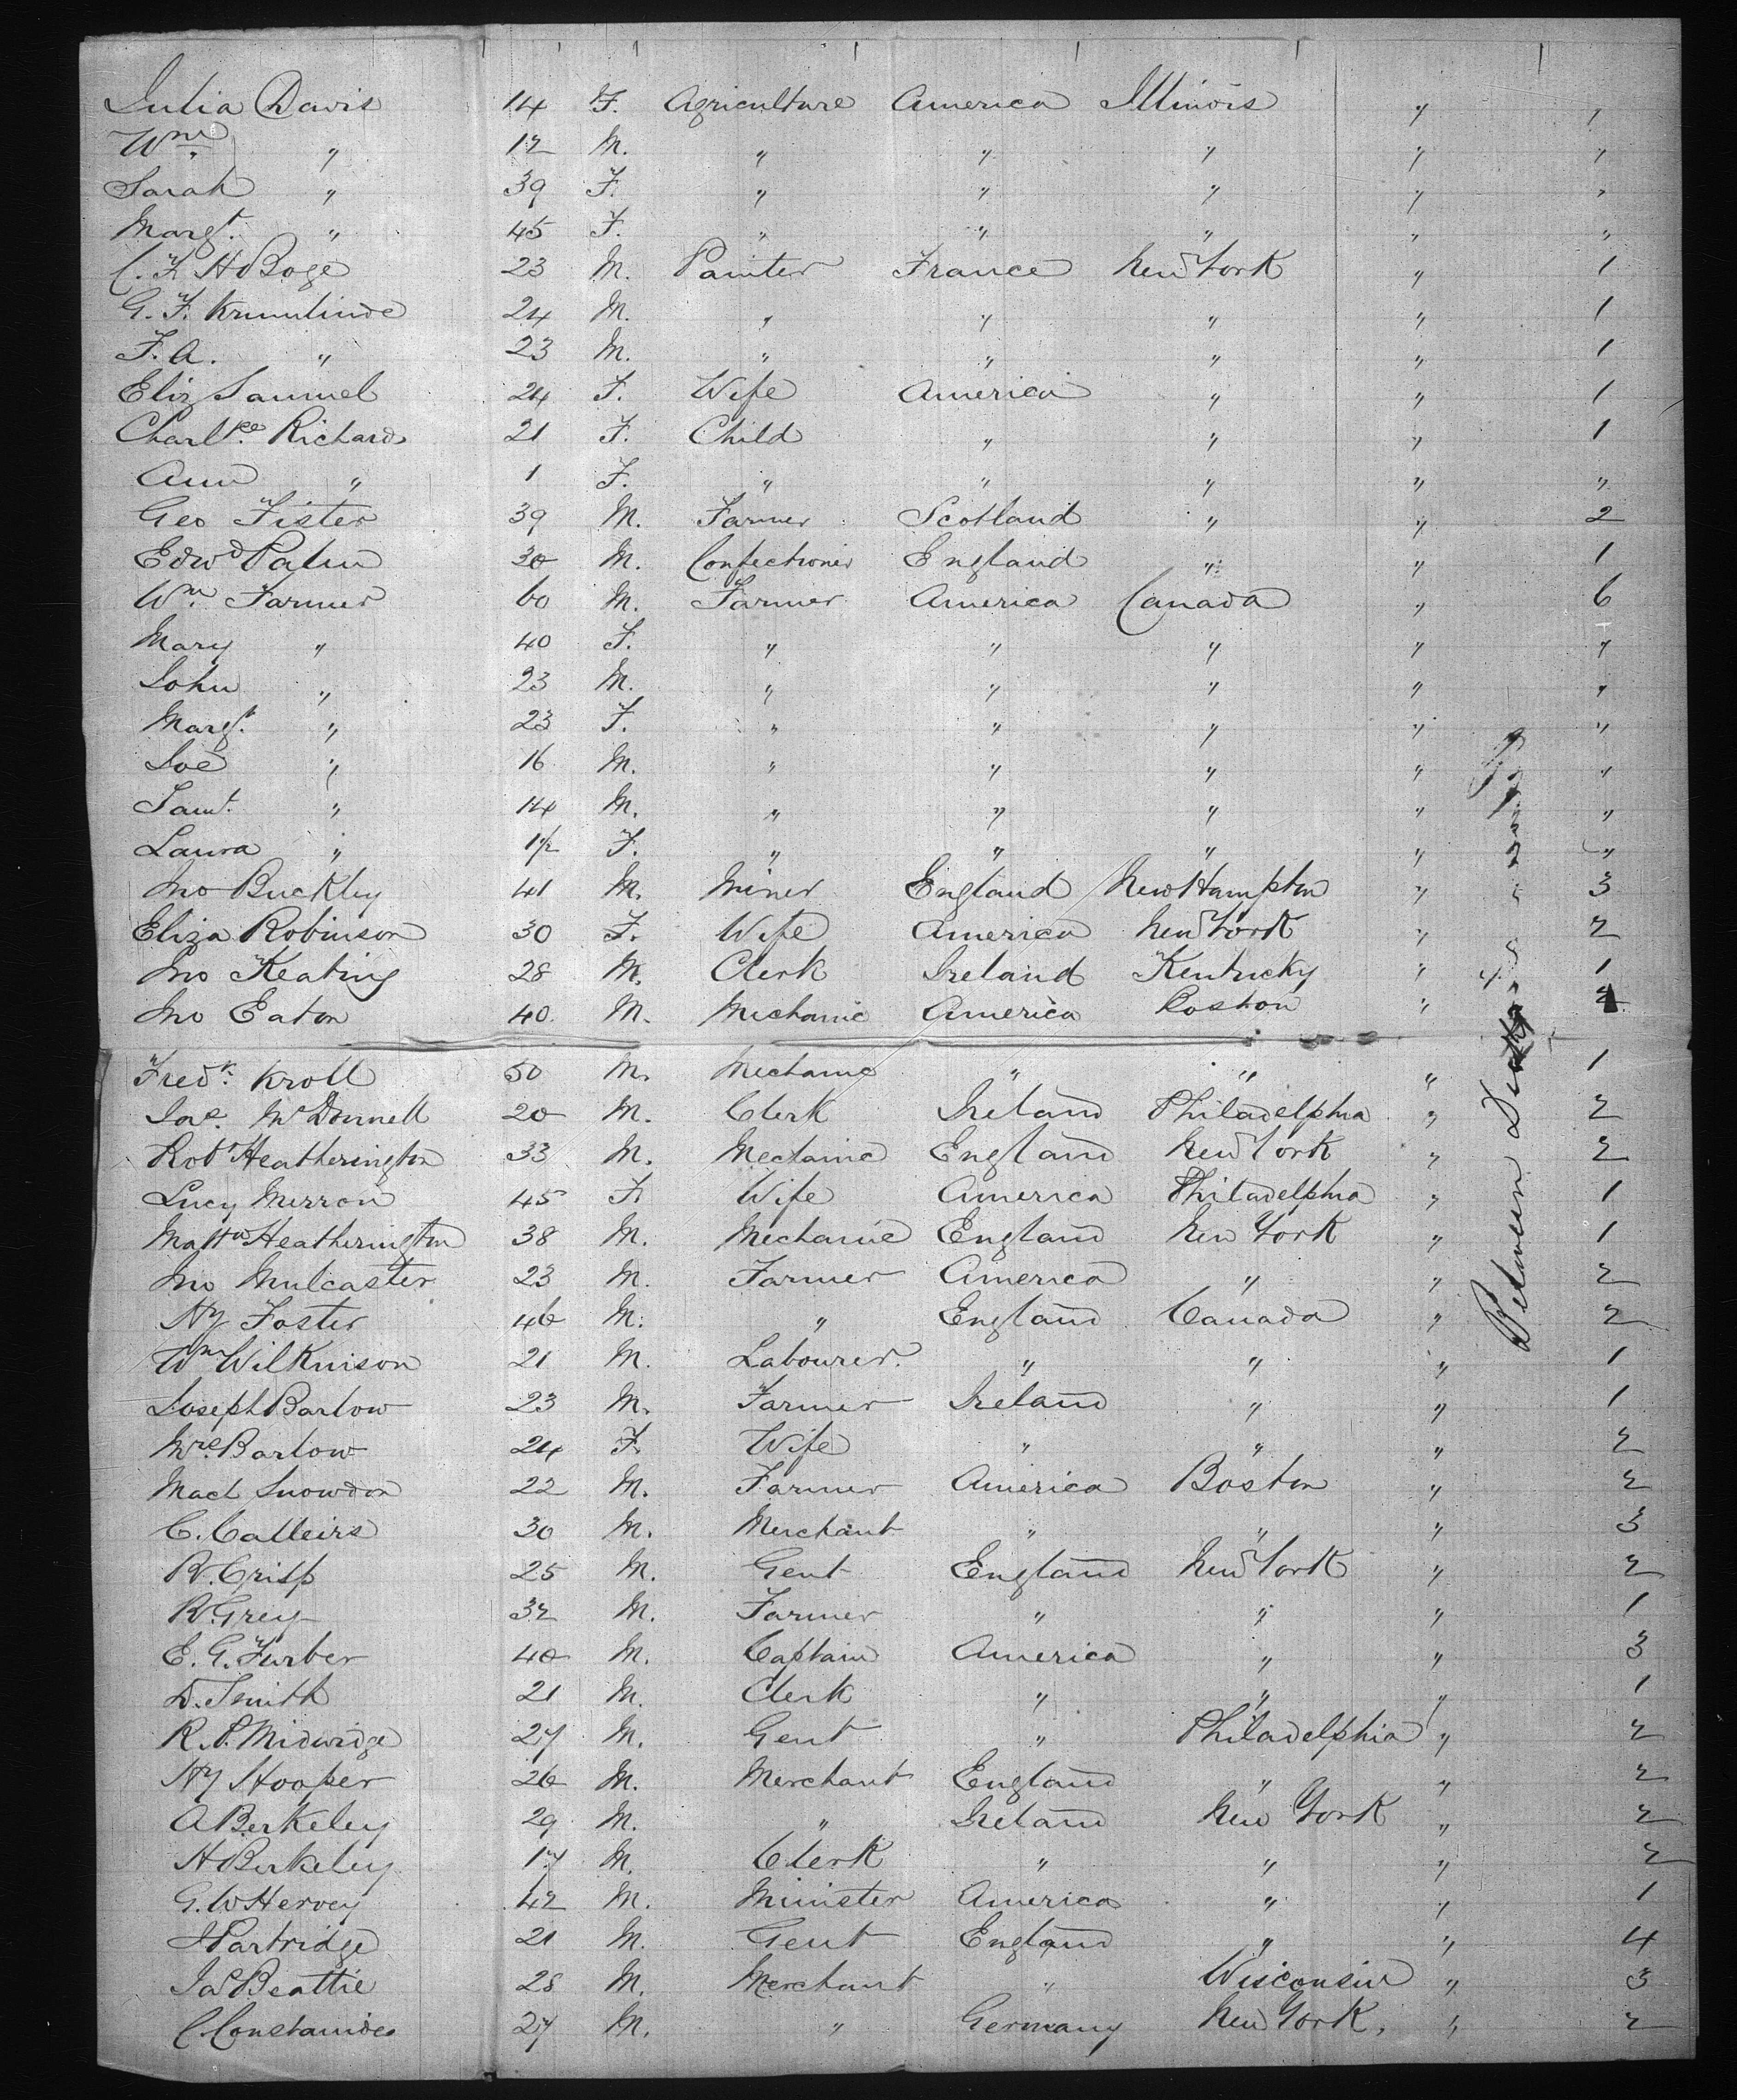 Julia Davis 14 F. Agriculture America Illinois " "
Wm " 12 M. " " " " "
Sarah " 39 F. " " " " "
Margt. " 45 F. " " " " "
C. F. H Boge 23 M. Painter France New York " 1
G. F. Krumlinde 24 M. " " " " 1
F. A. " 23 M. " " " " 1
Eliz Samuel 24 F. Wife America " " 1
Charltte Richards 21 F. Child " " " 1
Ann " 1 F. " " " " "
Geo Fister 39 M. Farmer Scotland " " 2
Edwd Palin 30 M. Confectioner England " " 1
Wm Farmer 60 M. Farmer America Canada " 6
Mary " 40 F. " " " " "
John " 23 M. " " " " "
Margt. " 23 F. " " " " "
Joe " 16 M. " " " " "
Saml. " 14 M. " " " " "
Laura " 1/2 F. " " " " "
Jno Buckley 41 M. Miner England New Hampton " 3
Eliza Robinson 30 F. Wife America New York " 2
Jno Keating 28 M. Clerk Ireland Kentucky " 1
Jno Eaton 40 M. Mechanic America Boston "
Fredk. Kroll 50 M. Mechanic " " " 1
Jas. McDonnell 20 M. Clerk Ireland Philadelphia " 2
Robt Heatherington 33 M. Mechanic England New York " 2
Lucy Merron 45 F. Wife America Philadelphia " 1
Mattw Heatherington 38 M. Mechanic England New York " 1
Jno Mulcaster 23 M. Farmer America " " 2
Hy Foster 46 M. " England Canada " 2
Wm Wilkinson 21 M. Labourer. " " " 1
Joseph Barlow 23 M. Farmer Ireland " " 1
Mrs Barlow 24 F. Wife " " " 2
Mact Snowdon 22 M. Farmer America Boston " 2
C. Calleirs 30 M. Merchant " " " 3
R. Crisp 25 M. Gent England New York " 2
R. Grey 32 M. Farmer " " " 1
E. G. Furber 40 M. Captain America " " 3
D. Smith 21 M. Clerk " " " 1
R. P. Midwidge 27 M. Gent " Philadelphia " 2
Hy Hooper 26 M. Merchant England " " 2
A Berkeley 29 M. " Ireland New York " 2
H Berkeley 17 M. Clerk " " " 2
G. W Hervey 42 M. Minister America " " 1
J Partridge 21 M. Gent England " " 4
Jas Beattie 28 M. Merchant " Wisconsin " 3
C Constanides 27 M. " Germany New York. " 2
Between Decks